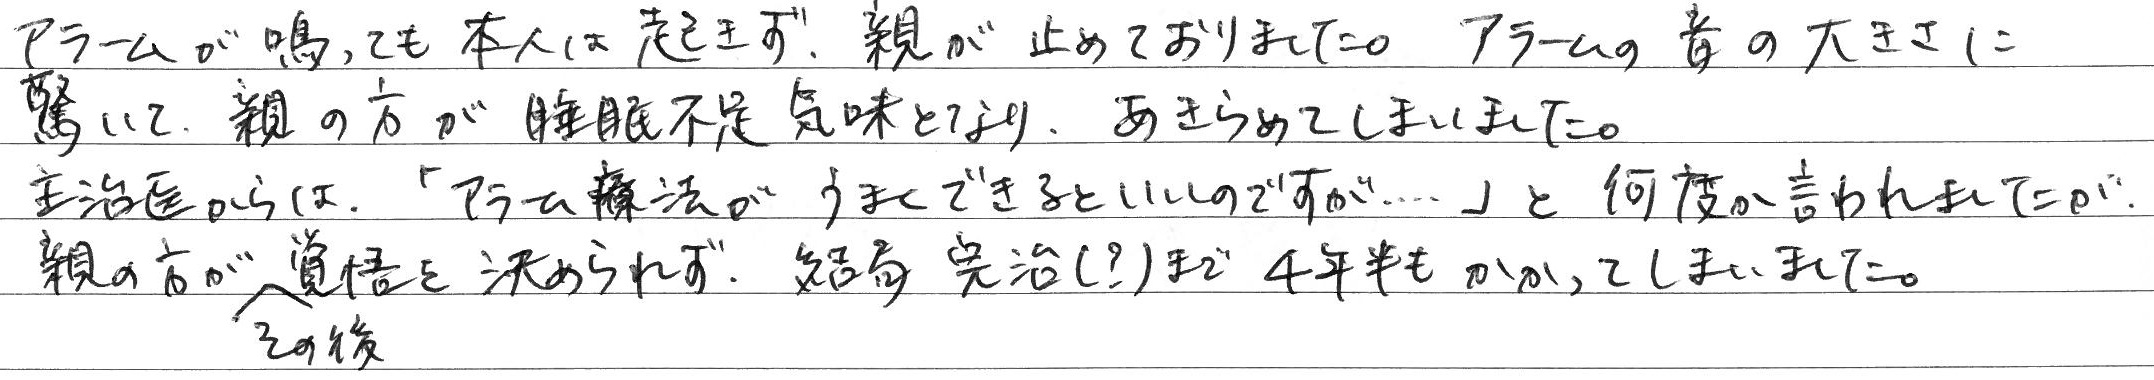 アラームが鳴っても本人は起きず、親が止めておりました。アラームの音の大きさに
驚いて、親の方が睡眠不足気味となり、あきらめてしまいました。
主治医からは、「アラーム療法がうまくできるといいのですが……」と何度か言われましたが、
親の方が覚悟を決められず、結局完治(?)まで4年半もかかってしまいました。
その後